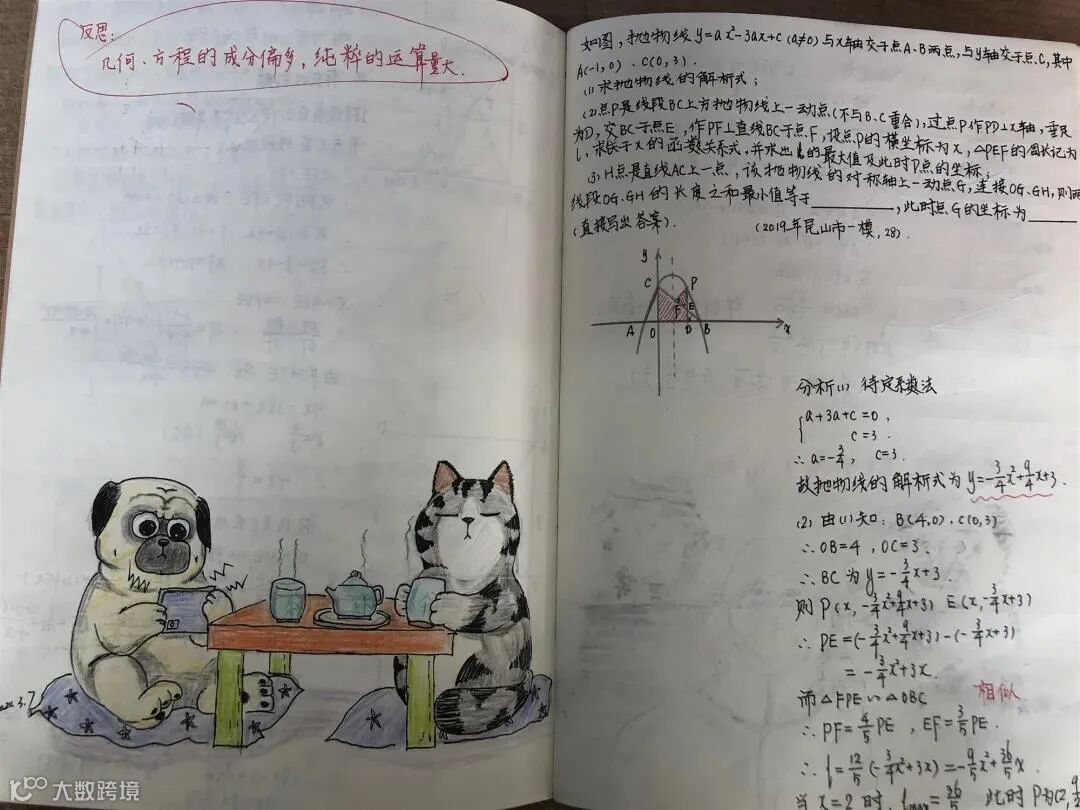 反思:
几何、方程的成分偏多,纯粹的运算量大.
如图,抛物线y=ax²-3ax+c(a≠0)与x轴交于点A、B两点,与y轴交于点C,其中
A(-1,0)、C(0,3).
(1)求抛物线的解析式;
(2)点P是线段BC上方抛物线上一动点(不与B、C重合),过点P作PD⊥x轴,垂足
为D,交BC于点E,作PF⊥直线BC于点F,设点P的横坐标为x,△PEF的周长记为
l,求l关于x的函数关系式,并求出l的最大值及此时P点的坐标;
(3)H点是直线AC上一点,该抛物线的对称轴上一动点G,连接OG、GH,则两
线段OG、GH的长度之和最小值等于________,此时点G的坐标为______
(直接写出答案).
(2019年昆山市一模,28).
y
C
P
E
F
A
O
D
B
x
分析(1) 待定系数法
a+3a+c=0,
c=3.
∴a=-3/4, c=3.
故抛物线的解析式为y=-3/4x²+9/4x+3.
(2) 由(1)知: B(4,0)、C(0,3)
∴OB=4,OC=3.
∴BC为y=-3/4x+3.
则P(x,-3/4x²+9/4x+3) E(x,-3/4x+3)
∴PE=(-3/4x²+9/4x+3)-(-3/4x+3)
=-3/4x²+3x.
而△FPE∽△OBC 相似
∴PF=4/5PE,EF=3/5PE.
∴l=12/5(-3/4x²+3x)=-9/5x²+36/5x.
当x=2时,lmax=36/5 此时P为(2,9
3.7
大数跨境